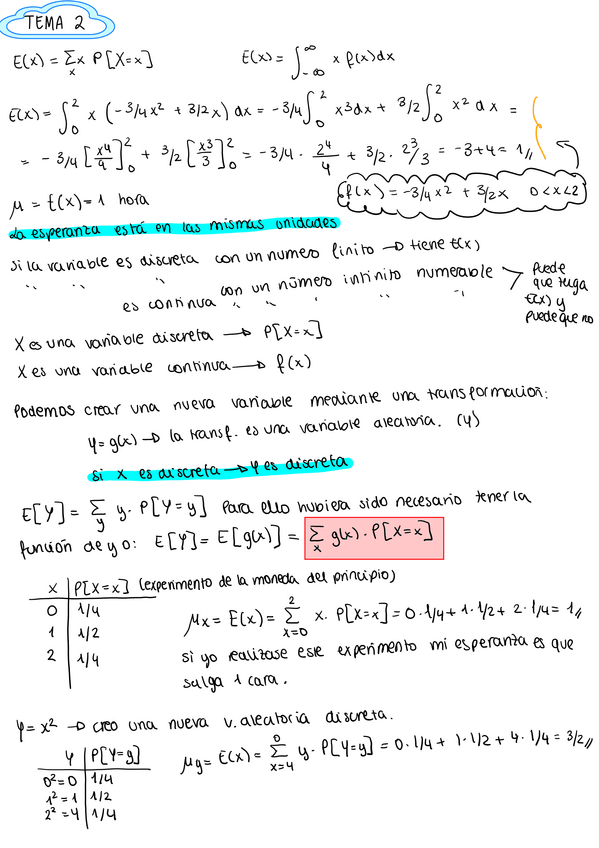 TEMA 2
E(x) = Σx x P[X=x]     E(x) = ∫_{-∞}^{∞} x f(x)dx
E(x) = ∫₀² x (-3/4x² + 3/2x) dx = -3/4 ∫₀² x³dx + 3/2 ∫₀² x² dx =
= -3/4 [x⁴/4]₀² + 3/2 [x³/3]₀² = -3/4 · 2⁴/4 + 3/2 · 2³/3 = -3+4 = 1//
f(x) = -3/4x² + 3/2x   0<x<2
μ = E(x) = 1 hora
La esperanza está en las mismas unidades
Si la variable es discreta con un numero finito → tiene E(x)
" " " con un número infinito numerable
es continua " " " "
puede
que tenga
E(x) y
puede que no
X es una variable discreta → P[X=x]
X es una variable continua → f(x)
Podemos crear una nueva variable mediante una transformación:
Y=g(x) → la transf. es una variable aleatoria. (Y)
Si X es discreta → Y es discreta
E[Y] = Σy y · P[Y=y] Para ello hubiera sido necesario tener la
función de y o: E[Y] = E[g(x)] = Σx g(x) · P[X=x]
X | P[X=x] (experimento de la moneda del principio)
0 | 1/4
1 | 1/2
2 | 1/4
μx = E(x) = Σ_{x=0}^{2} x · P[X=x] = 0 · 1/4 + 1 · 1/2 + 2 · 1/4 = 1//
Si yo realizase este experimento mi esperanza es que
salga 1 cara.
Y = x² → creo una nueva v. aleatoria discreta.
Y | P[Y=y]
0²=0 | 1/4
1²=1 | 1/2
2²=4 | 1/4
μy = E(x) = Σ_{x=4}^{0} y · P[Y=y] = 0 · 1/4 + 1 · 1/2 + 4 · 1/4 = 3/2//